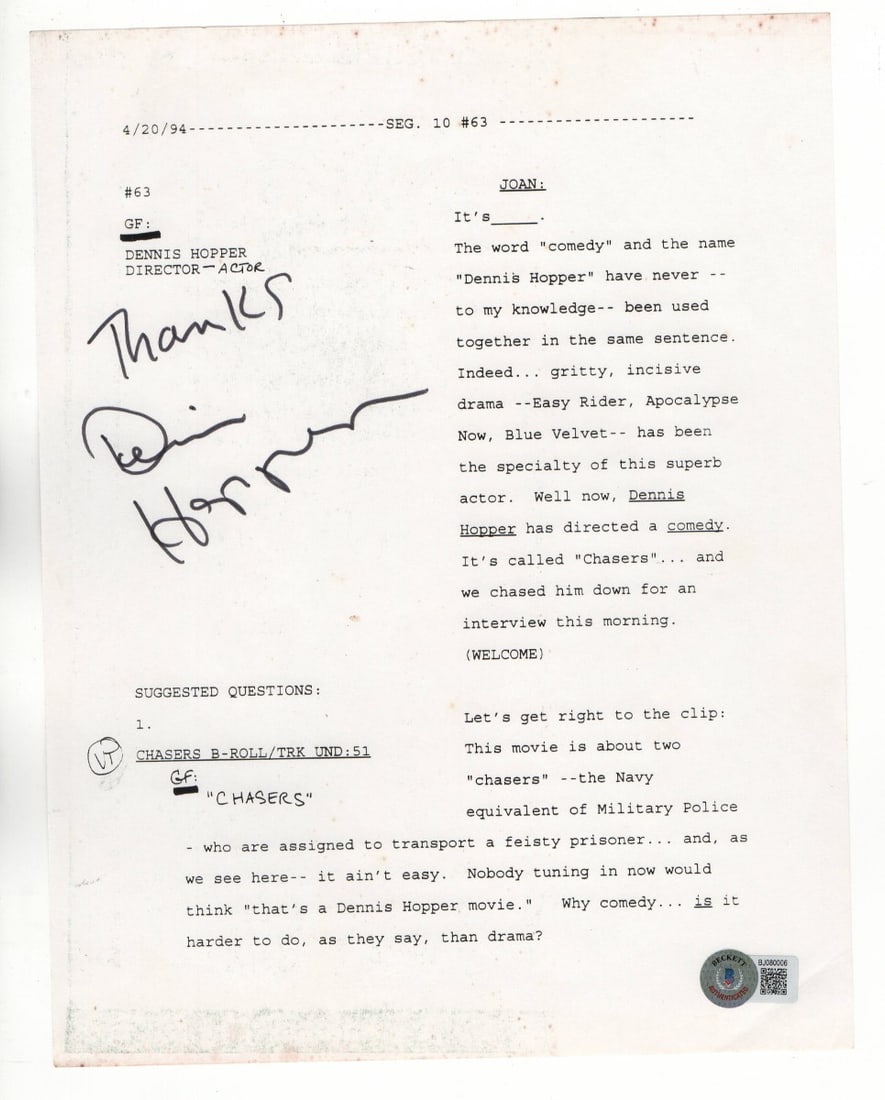 4/20/94---------------------SEG. 10 #63 ---------------------
#63
GF:
DENNIS HOPPER
DIRECTOR—ACTOR
Thanks
Dennis
Hopper
JOAN:
It's_____.
The word "comedy" and the name
"Dennis Hopper" have never --
to my knowledge-- been used
together in the same sentence.
Indeed... gritty, incisive
drama --Easy Rider, Apocalypse
Now, Blue Velvet-- has been
the specialty of this superb
actor.  Well now, Dennis
Hopper has directed a comedy.
It's called "Chasers"... and
we chased him down for an
interview this morning.
(WELCOME)
SUGGESTED QUESTIONS:
1.
VT CHASERS B-ROLL/TRK UND:51
GF:
"CHASERS"
Let's get right to the clip:
This movie is about two
"chasers" --the Navy
equivalent of Military Police
- who are assigned to transport a feisty prisoner... and, as
we see here-- it ain't easy.  Nobody tuning in now would
think "that's a Dennis Hopper movie."   Why comedy... is it
harder to do, as they say, than drama?
BECKETT
AUTHENTICATED
BJ080006